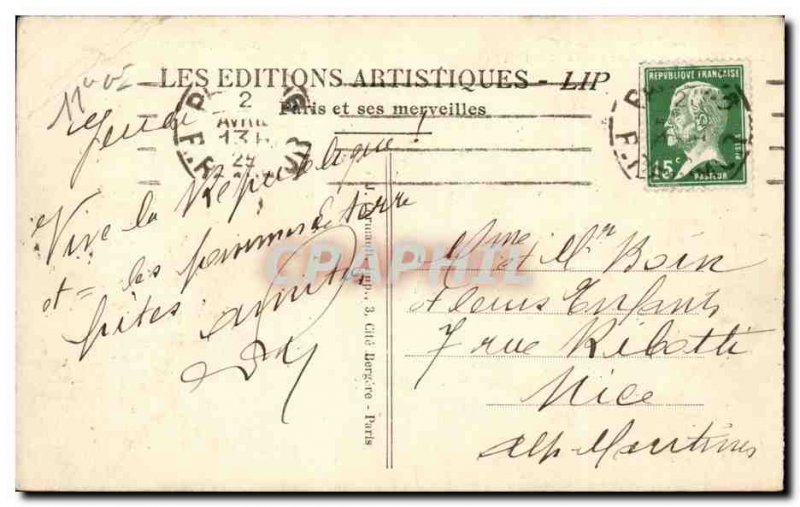 LES EDITIONS ARTISTIQUES - LIP
Paris et ses merveilles
2
AVRIL
13H
25
REPUBLIQUE FRANÇAISE
15c
POSTES
PASTEUR
Jeudi
Vive la République!
et = les pommes de terre
frites.
amitiés
Mme et Mr Boin
et leurs Enfants
7 rue Ribotti
Nice
Alp Maritimes
Imp., 3, Cité Bergère - Paris
CPARAMA